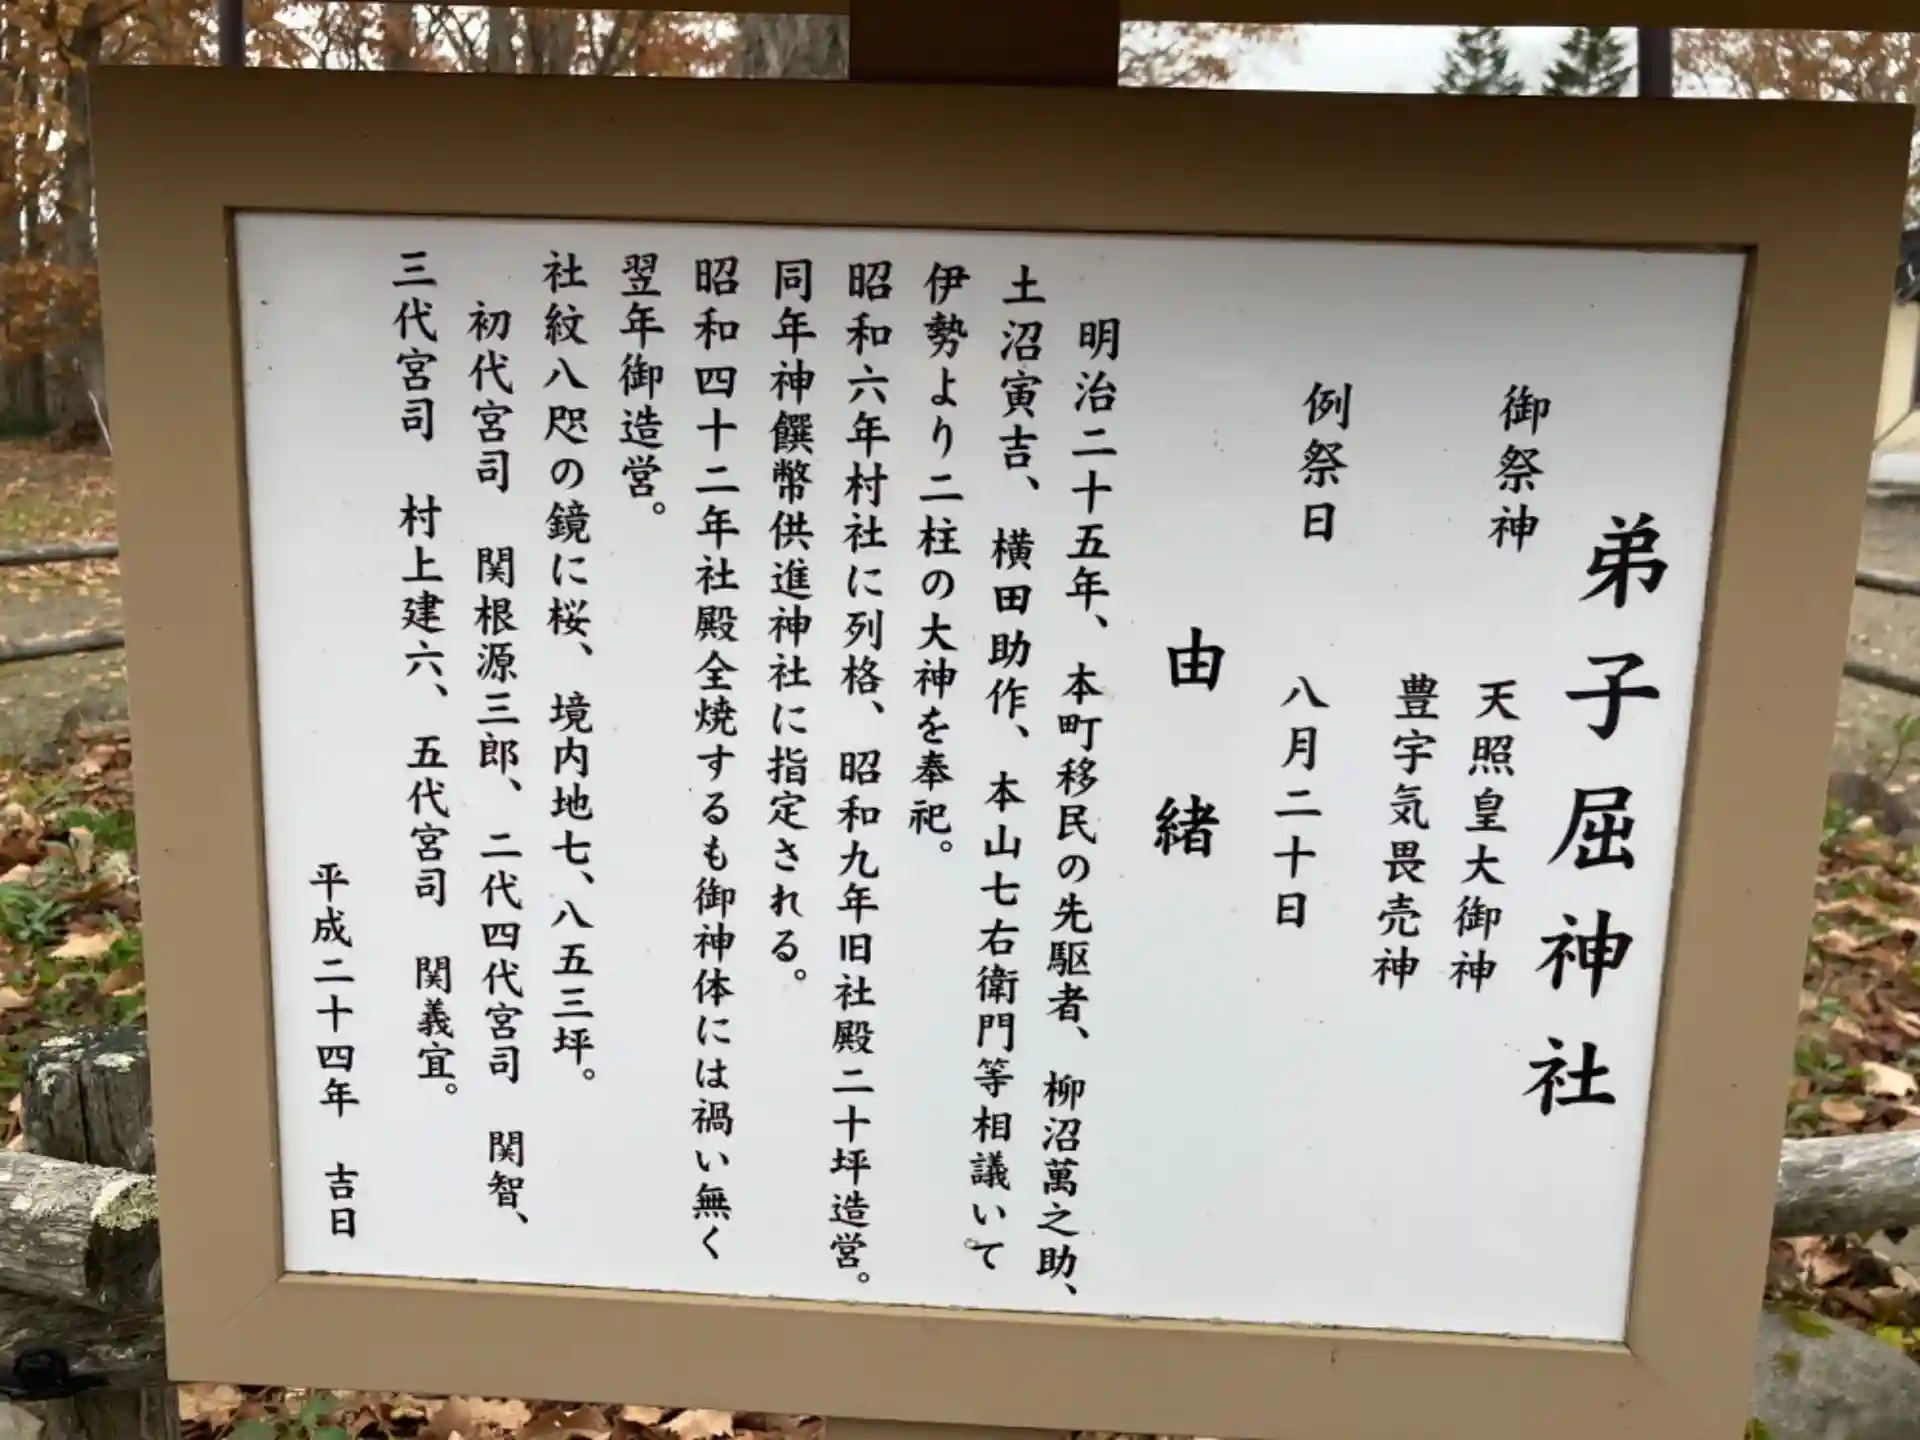 弟子屈神社
御祭神　天照皇大御神
豊宇気畏売神
例祭日　八月二十日
由緒
明治二十五年、本町移民の先駆者、柳沼萬之助、
土沼寅吉、横田助作、本山七右衛門等相議いて
伊勢より二柱の大神を奉祀。
昭和六年村社に列格、昭和九年旧社殿二十坪造営。
同年神饌幣供進神社に指定される。
昭和四十二年社殿全焼するも御神体には禍い無く
翌年御造営。
社紋八咫の鏡に桜、境内地七、八五三坪。
初代宮司　関根源三郎、二代四代宮司　関智、
三代宮司　村上建六、五代宮司　関義宜。
平成二十四年　吉日